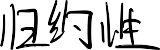 归约性